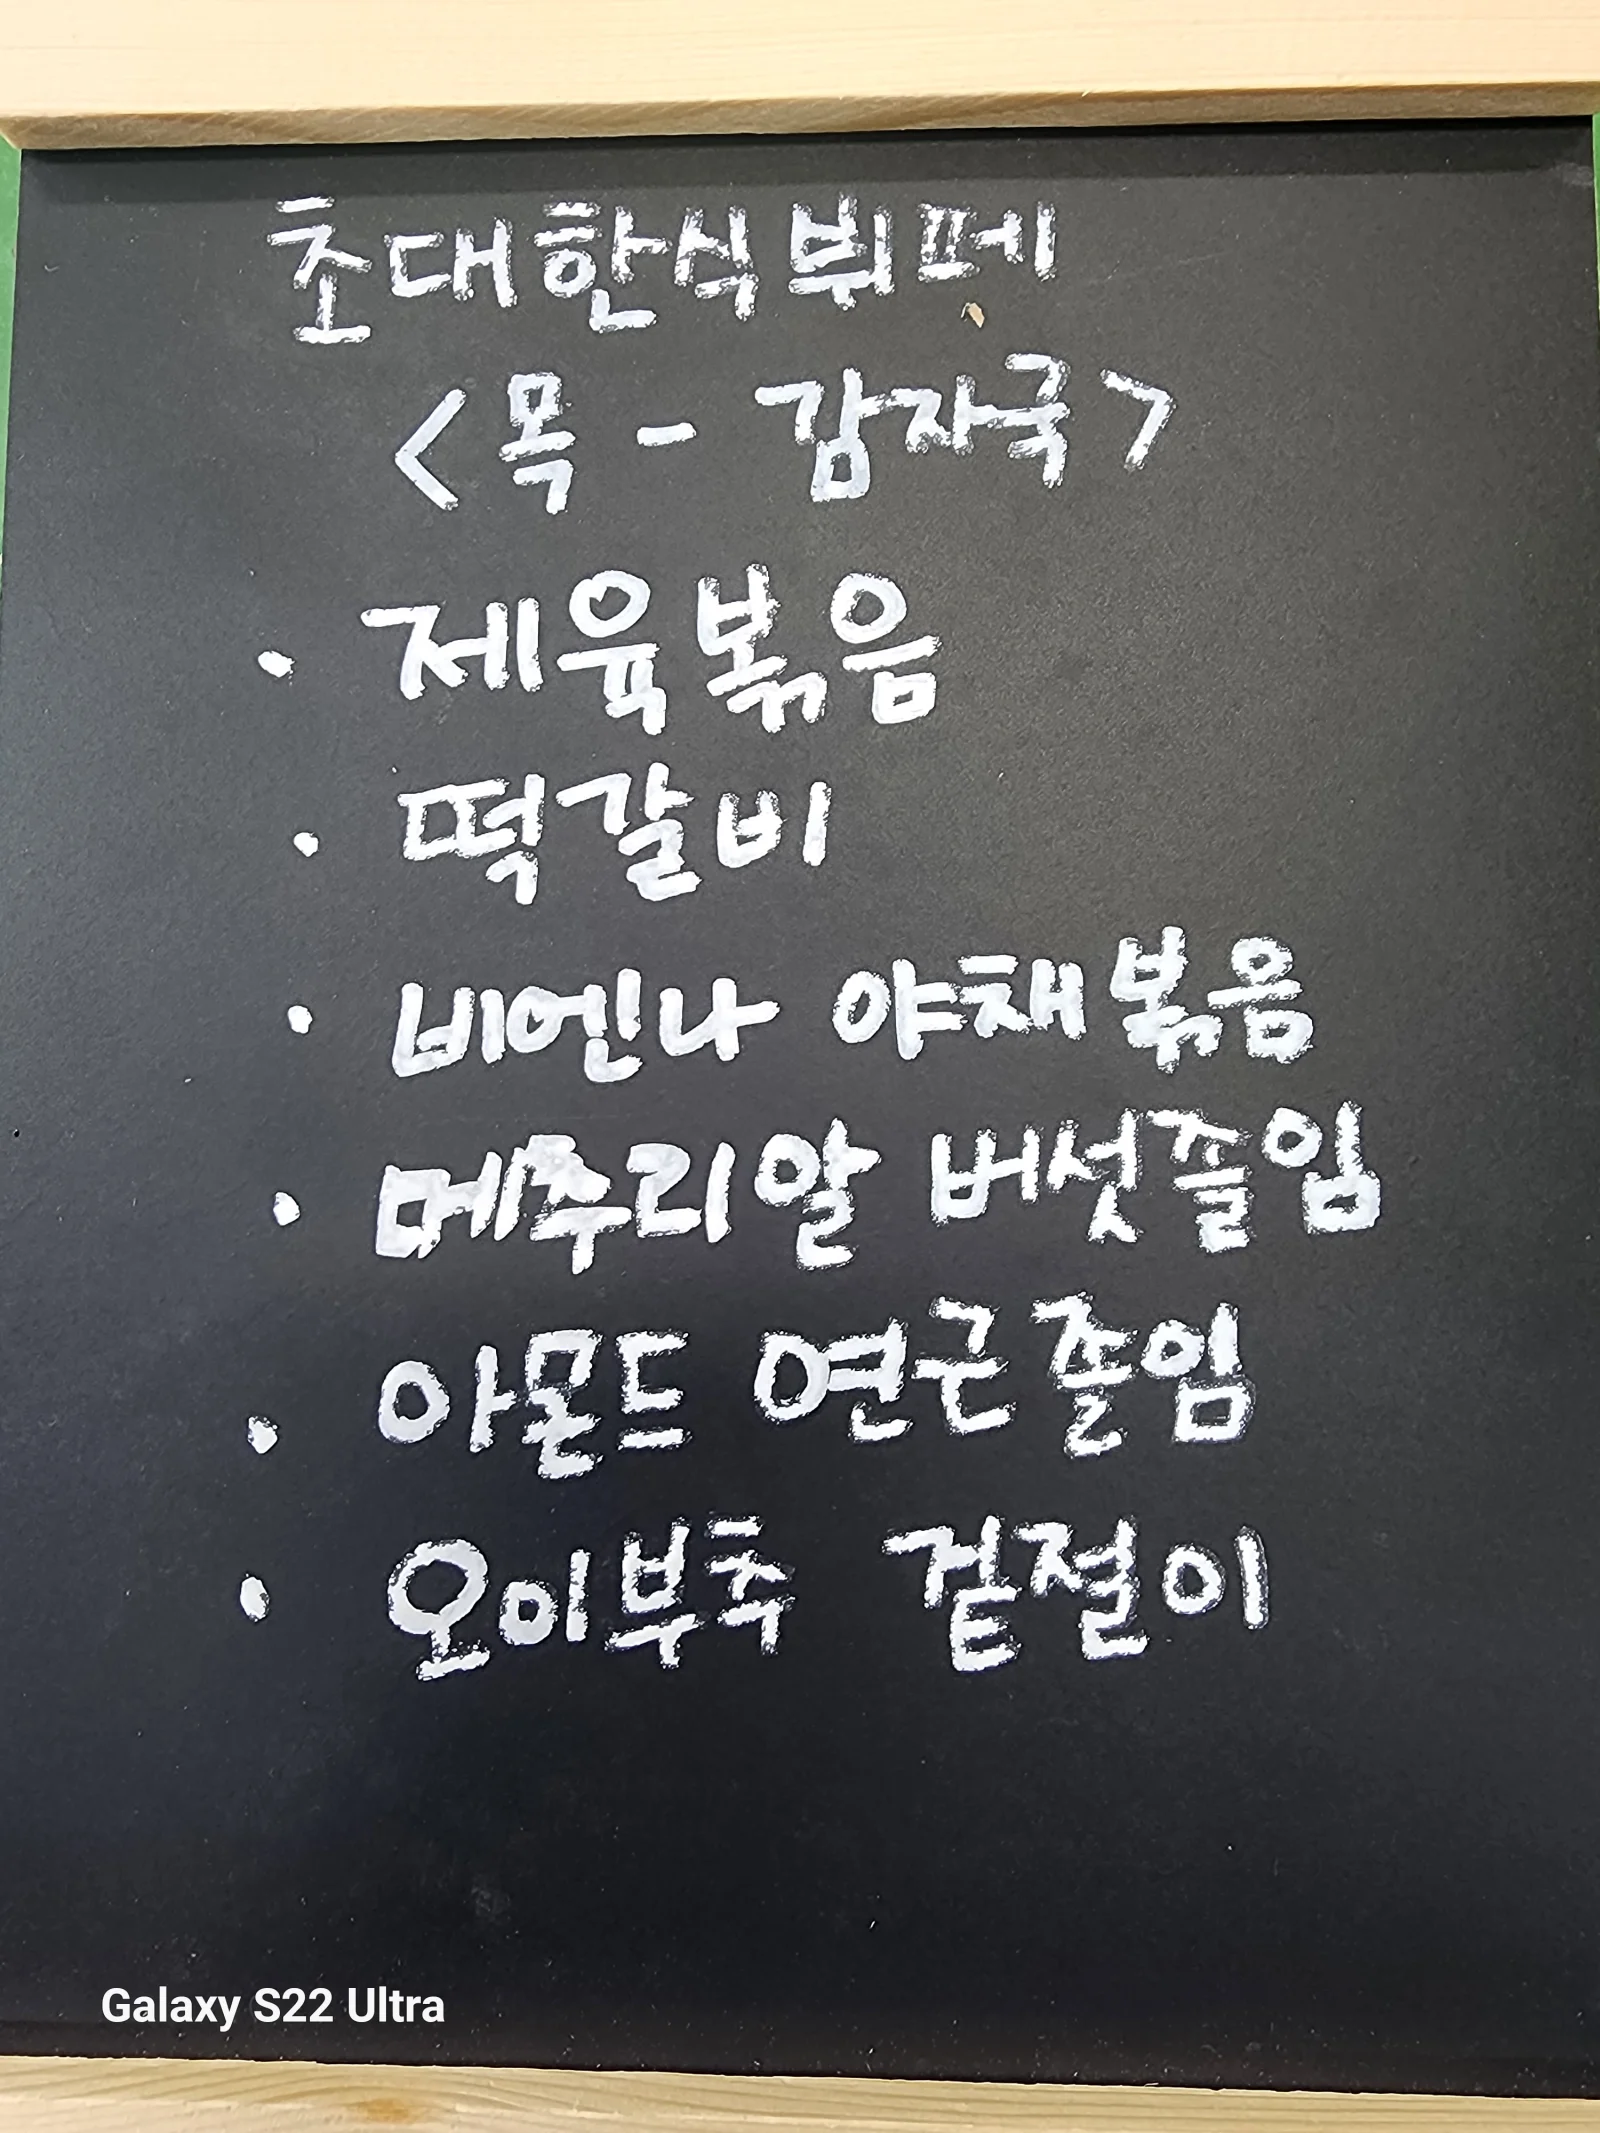 초대한식뷔페
<목 - 감자국>
• 제육볶음
• 떡갈비
• 비엔나 야채볶음
• 메추리알 버섯졸임
• 아몬드 연근졸임
• 오이부추 겉절이
Galaxy S22 Ultra